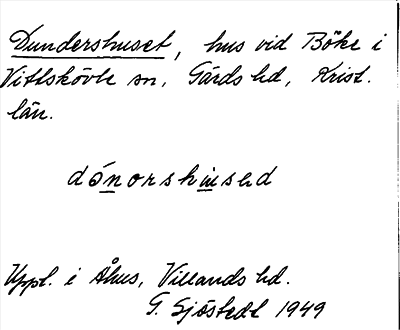 Dundershuset, hus vid Böke i
Vittskövle sn, Gärds hd, Krist.
län.
dónorshused
Uppl. i Åhus, Villands hd.
G. Sjöstedt 1949